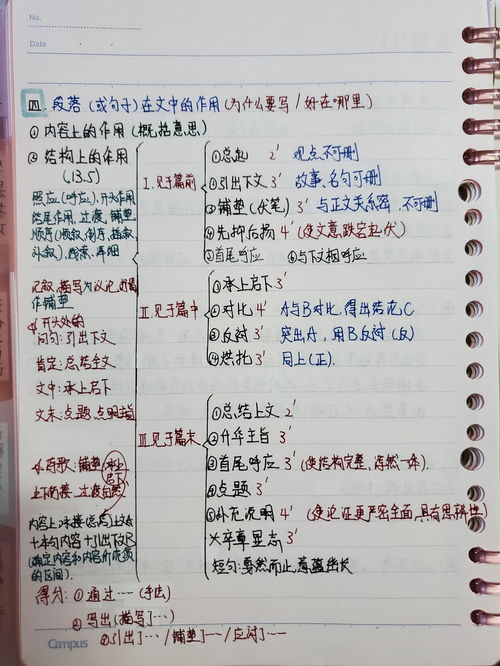 No.
Date
四.段落(或句子)在文中的作用(为什么要写/好在哪里)
①内容上的作用(概括意思)
②结构上的作用
(1.3.5)
照应(呼应),开头作用
结尾作用,过渡,铺垫
顺序(顺叙,倒序,插叙
补叙),线索,详细
记叙,描写为议论,抒情
作铺垫
开头处的
问句:引出下文
肯定:总结全文
文中:承上启下
文末:点题,点明主旨
诗歌:铺垫 承上启下
上下衔接,过渡自然
内容上:承接(总结)上文
+本句内容+引出下文
(确定内容和内容价值
的区间).
Ⅰ.见于篇前
①总起 2' 观点,不可删
②引出下文 3' 故事,名句可删
③铺垫(伏笔) 3' 与正文关系密,不可删
④先抑后扬 4' (使文意跌宕起伏)
⑤首尾呼应 ⑥与下文相呼应
Ⅱ.见于篇中
①承上启下 3'
②对比 4' A与B对比,得出结论C
③反衬 3' 突出A,用B反衬(反)
④烘托 3' 同上(正).
Ⅲ.见于篇末
①总结上文 2'
②升华主旨 3'
③首尾呼应 3' (使结构完整,浑然一体).
④点题 3'
⑤补充说明 4' (使论证更严密全面,具有思辨性)
⑥卒章显志 3'
短句:戛然而止,意蕴悠长
得分:①通过……(手法)
②写出(描写)……
③引出了……/铺垫了……/应对了……
Campus